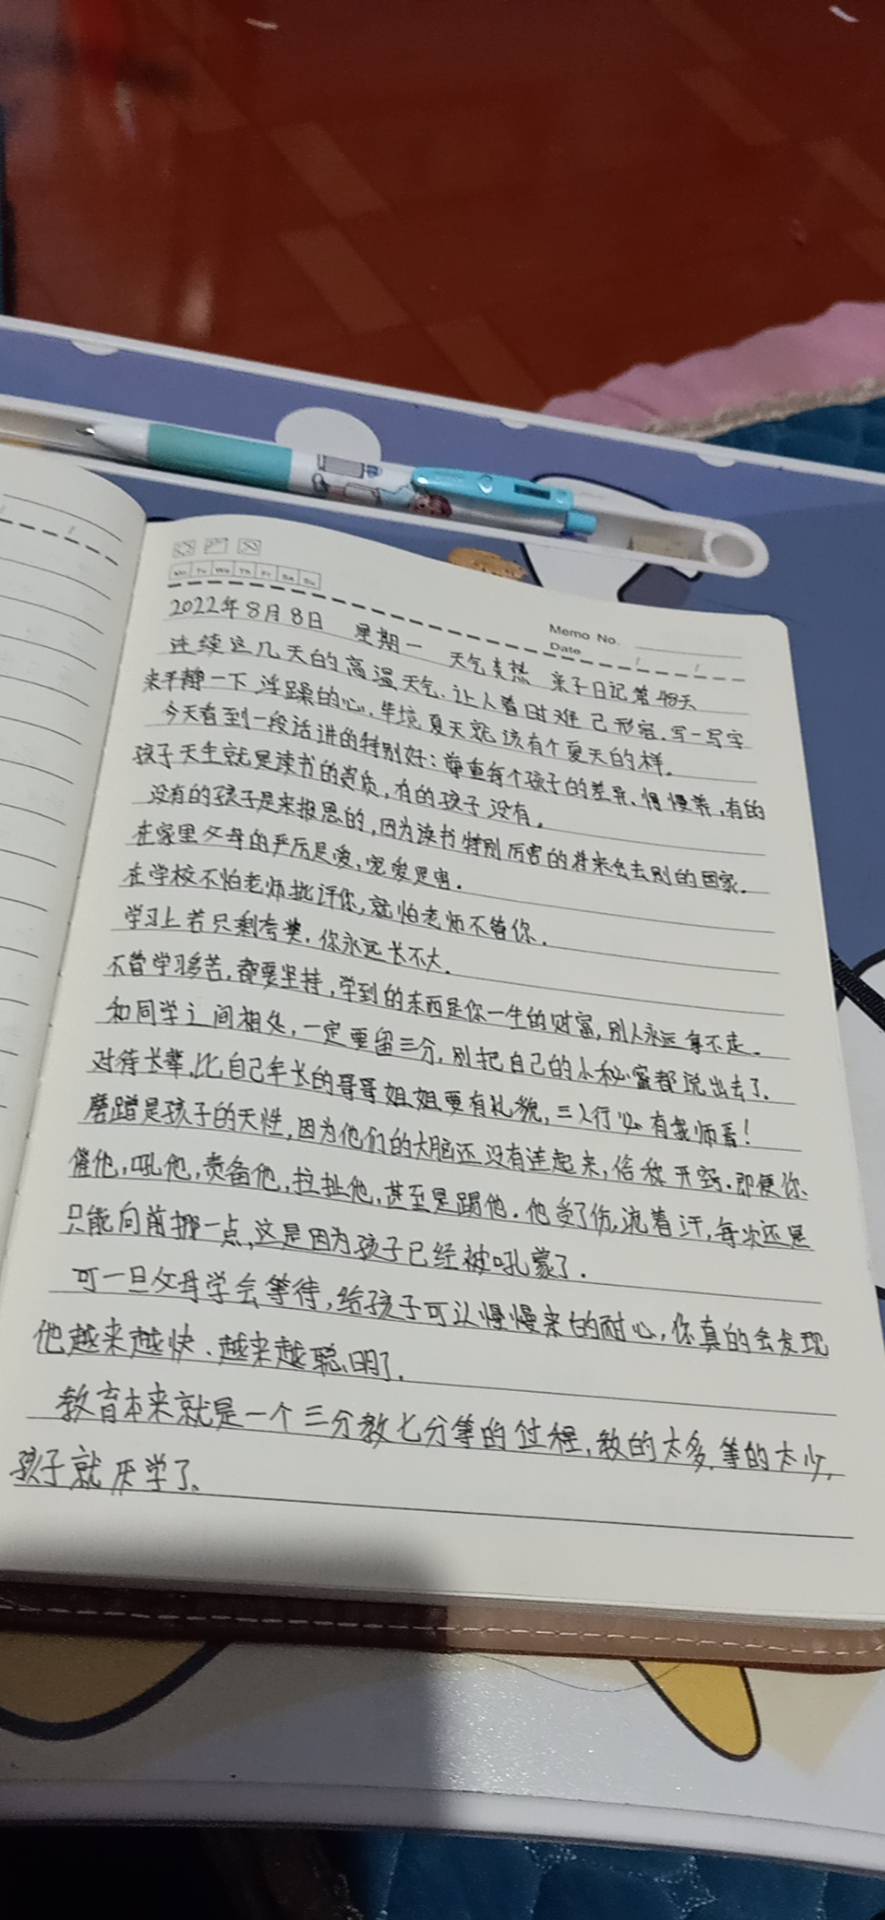 Mo Tu We Th Fr Sa Su
Memo No.
Date
2022年8月8日 星期一 天气炎热 亲子日记第48天
连续这几天的高温天气,让人着时难已形容,写一写字
来平静一下浮躁的心,毕境夏天就该有个夏天的样。
今天看到一段话讲的特别好:尊重每个孩子的差异、慢慢养,有的
孩子天生就是读书的资质,有的孩子没有。
没有的孩子是来报恩的,因为读书特别厉害的将来会去别的国家。
在家里父母的严厉是爱,宠爱是害。
在学校不怕老师批评你,就怕老师不管你.
学习上若只剩夸奖,你永远长不大.
不管学习多苦,都要坚持,学到的东西是你一生的财富,别人永远拿不走。
和同学之间相处,一定要留三分,别把自己的小秘密都说出去了.
对待长辈,比自己年长的哥哥姐姐要有礼貌,三人行必有我师焉!
磨蹭是孩子的天性,因为他们的大脑还没有连起来,俗称开窍.即便你
催他,吼他,责备他,拉扯他,甚至是踢他.他受了伤,流着汗,每次还是
只能向前挪一点,这是因为孩子已经被吼蒙了.
可一旦父母学会等待,给孩子可以慢慢来的耐心,你真的会发现
他越来越快、越来越聪明了.
教育本来就是一个三分教七分等的过程,教的太多,等的太少,
孩子就厌学了。